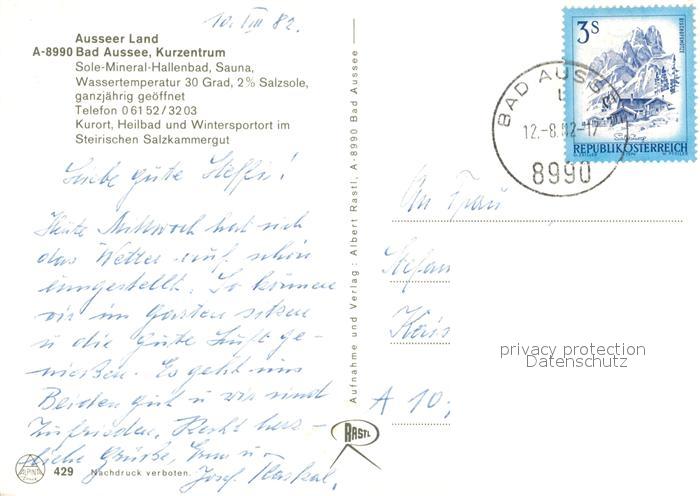 10. VIII 82.
Ausseer Land
A-8990 Bad Aussee, Kurzentrum
Sole-Mineral-Hallenbad, Sauna,
Wassertemperatur 30 Grad, 2% Salzsole,
ganzjährig geöffnet
Telefon 0 61 52 / 32 03
Kurort, Heilbad und Wintersportort im
Steirischen Salzkammergut
Liebe gute Steffi!
Heute Mittwoch hat sich
das Wetter auf schön
umgestellt. So können
wir im Garten sitzen
u die gute Luft ge-
nießen. Es geht uns
Beiden gut u wir sind
zufrieden. Recht herz-
liche Grüße, Erna u
Josef
ALPINA
429 Nachdruck verboten.
Aufnahme und Verlag: Albert Rastl, A-8990 Bad Aussee
RASTL
3S
BISCHOFSMÜTZE
Salzburg
REPUBLIK ÖSTERREICH
BAD AUSS
12.-8. 82-17
8990
An Frau
Stefan
Kais
A 10;
privacy protection
Datenschutz